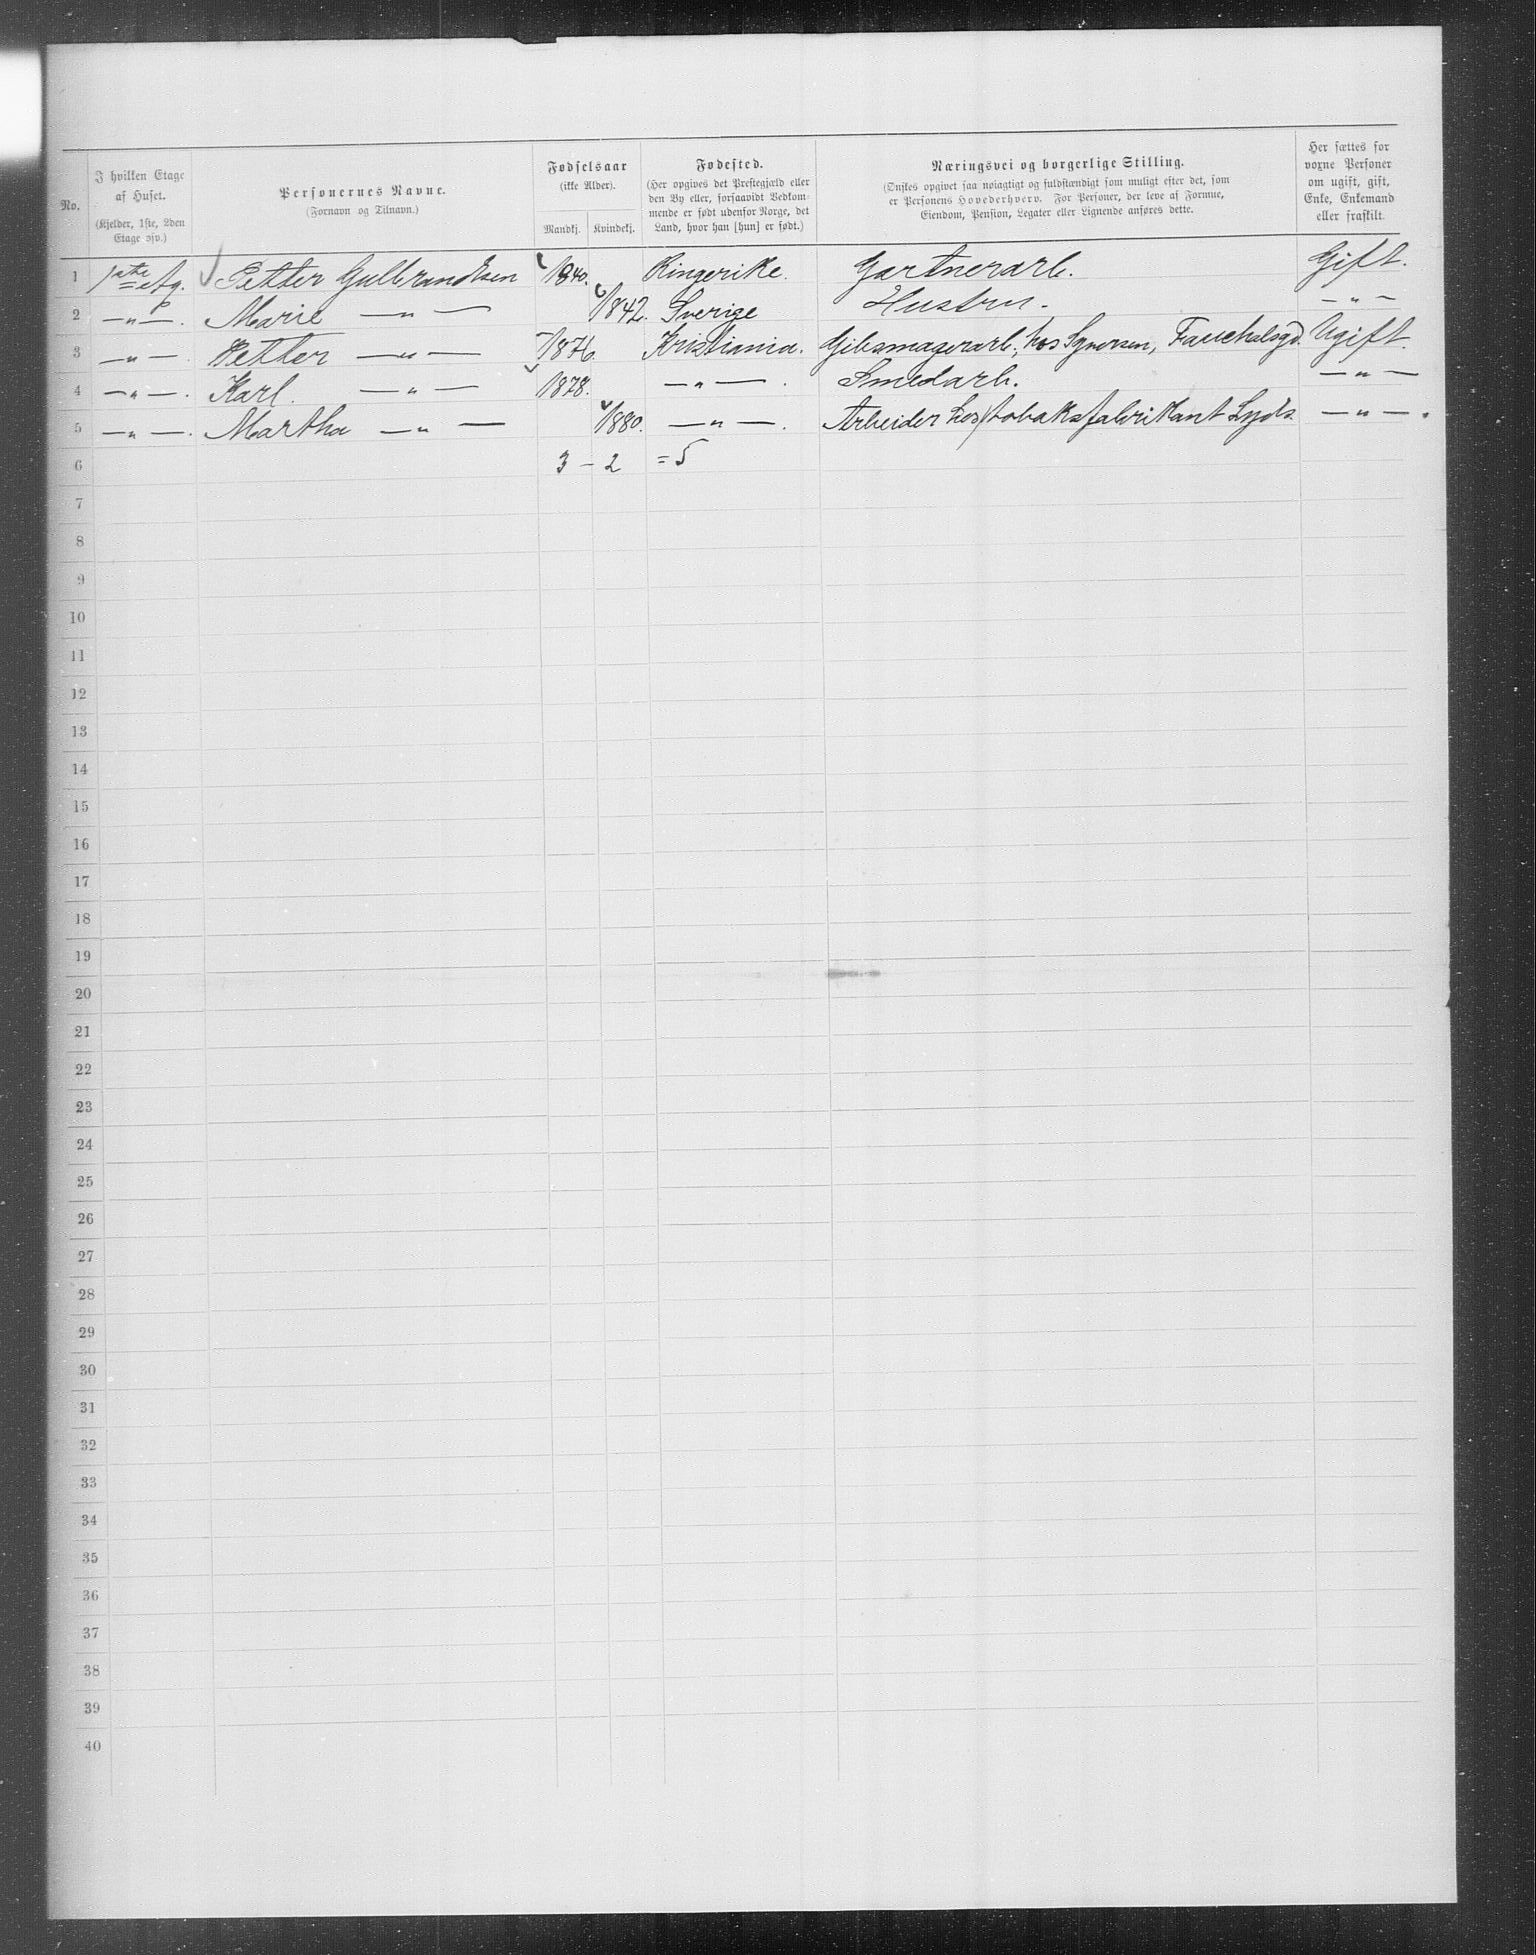 No.
I hvilken Etage af Huset.
(Kjelder, 1ste, 2den Etage osv.)
Personernes Navne.
(Fornavn og Tilnavn.)
Fødselsaar
(ikke Alder).
Mandkj. Kvindekj.
Fødested.
(Her opgives det Prestegjæld eller
den By eller, forsaavidt Vedkom-
mende er født udenfor Norge, det
Land, hvor han [hun] er født.)
Næringsvei og borgerlige Stilling.
(Ønskes opgivet saa nøiagtigt og fuldstændigt som muligt efter det, som
er Personens Hovederhverv. For Personer, der leve af Formue,
Eiendom, Pension, Legater eller Lignende anføres dette.
Her sættes for
voxne Personer
om ugift, gift,
Enke, Enkemand
eller fraskilt.
1 1ste Etg. Petter Gulbrandsen 1840. Ringerike. Gartnerarb. Gift.
2 —„—. Marie —„— 1842. Sverige Hustru. —„—
3 —„—. Petter —„— 1876. Kristiania. Gibsmagerarb. hos Syversen, Ugift.
4 —„—. Karl. —„— 1878. —„—. Smedarb. —„—
5 —„—. Martha —„— 1880. —„—. Arbeider hos tobaksfabrikant —„—.
6 3 – 2 = 5
7
8
9
10
11
12
13
14
15
16
17
18
19
20
21
22
23
24
25
26
27
28
29
30
31
32
33
34
35
36
37
38
39
40